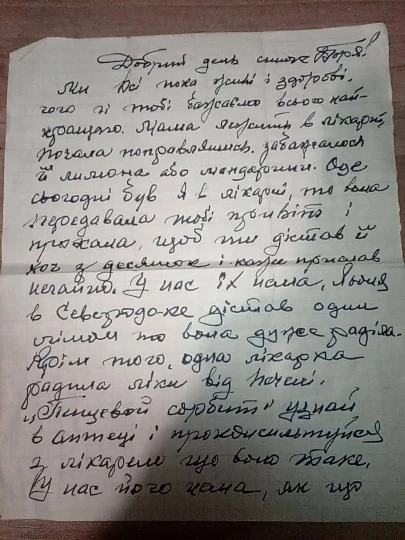 Добрий день синок Боря!
Ми всі поки живі і здорові,
чого і тобі бажаємо всього най-
кращого. Мама лежить в лікарні,
почала поправлятись. забажалося
їй лимона або мандаринки. Оце
сьогодні був я в лікарні, то вона
передавала тобі привіт і
прохала, щоб ти дістав їй
хоч з десяток і каже прислав
негайно. У нас їх нема,
в Сєвєродоке дістав один
лімон то вона дуже раділа.
Крім того, одна лікарка
радила ліки від печені.
„Пищевой сорбит" узнай
в аптеці і проконсультуйся
з лікарем що воно таке.
У нас його нема, як що